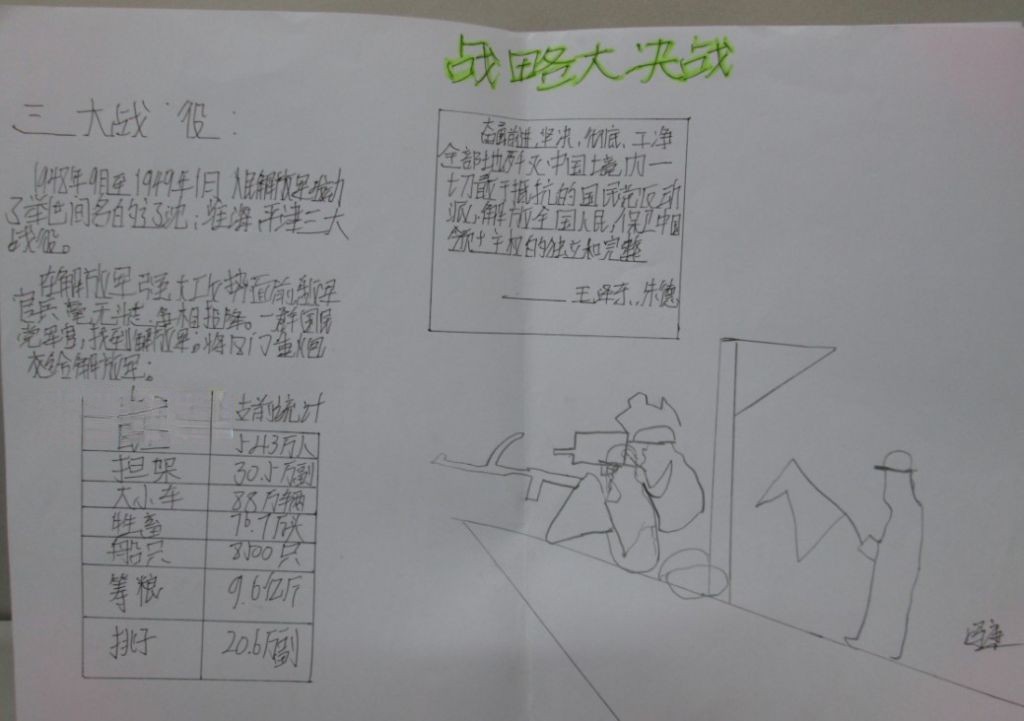 战略大决战
三大战役:
1948年9月至1949年1月 人民解放军发动
了举世间名的辽沈;淮海,平津三大
战役。
在解放军强大工攻势面前,敌军
官兵 无斗志,争相投降。一群国民
党军官,找到解放军。将几门重炮
交给解放军:
奋勇前进,坚决,彻底、干净
全部地歼灭中国境内一
切敢于抵抗的国民党反动
派,解放全国人民,保卫中国
领土主权的独立和完整
——毛泽东、朱德
支前统计
民工 543万人
担架 30.5万副
大小车 88万辆
牲畜 76.7万头
船只 8500只
筹粮 9.6亿斤
挑子 20.6万副